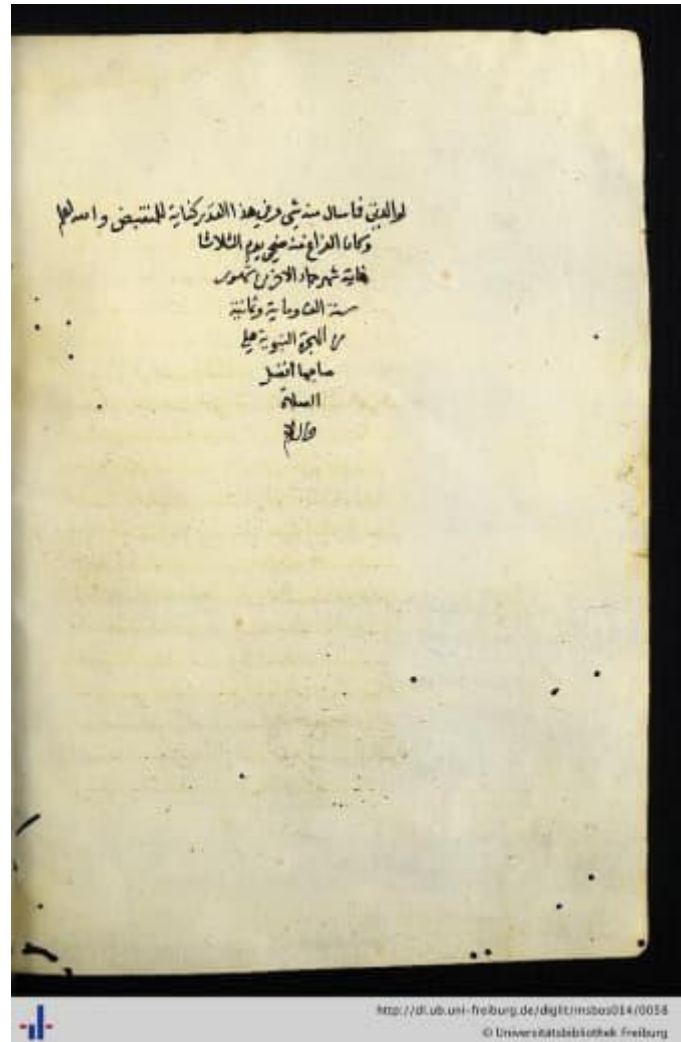 لوالدين فاسال منه شي وفي هذا القدر كفاية للمنتبض والله اعلم
وكان الفراغ منه ضحي يوم الثلاثا
غاية شهر جماد الاخر من شهور
سنة الف وماية وثمانية
من الهجرة النبوية على
صاحبها افضل
الصلاة
والسلام
http://dl.ub.uni-freiburg.de/diglit/msbos014/0058
© Universitätsbibliothek Freiburg